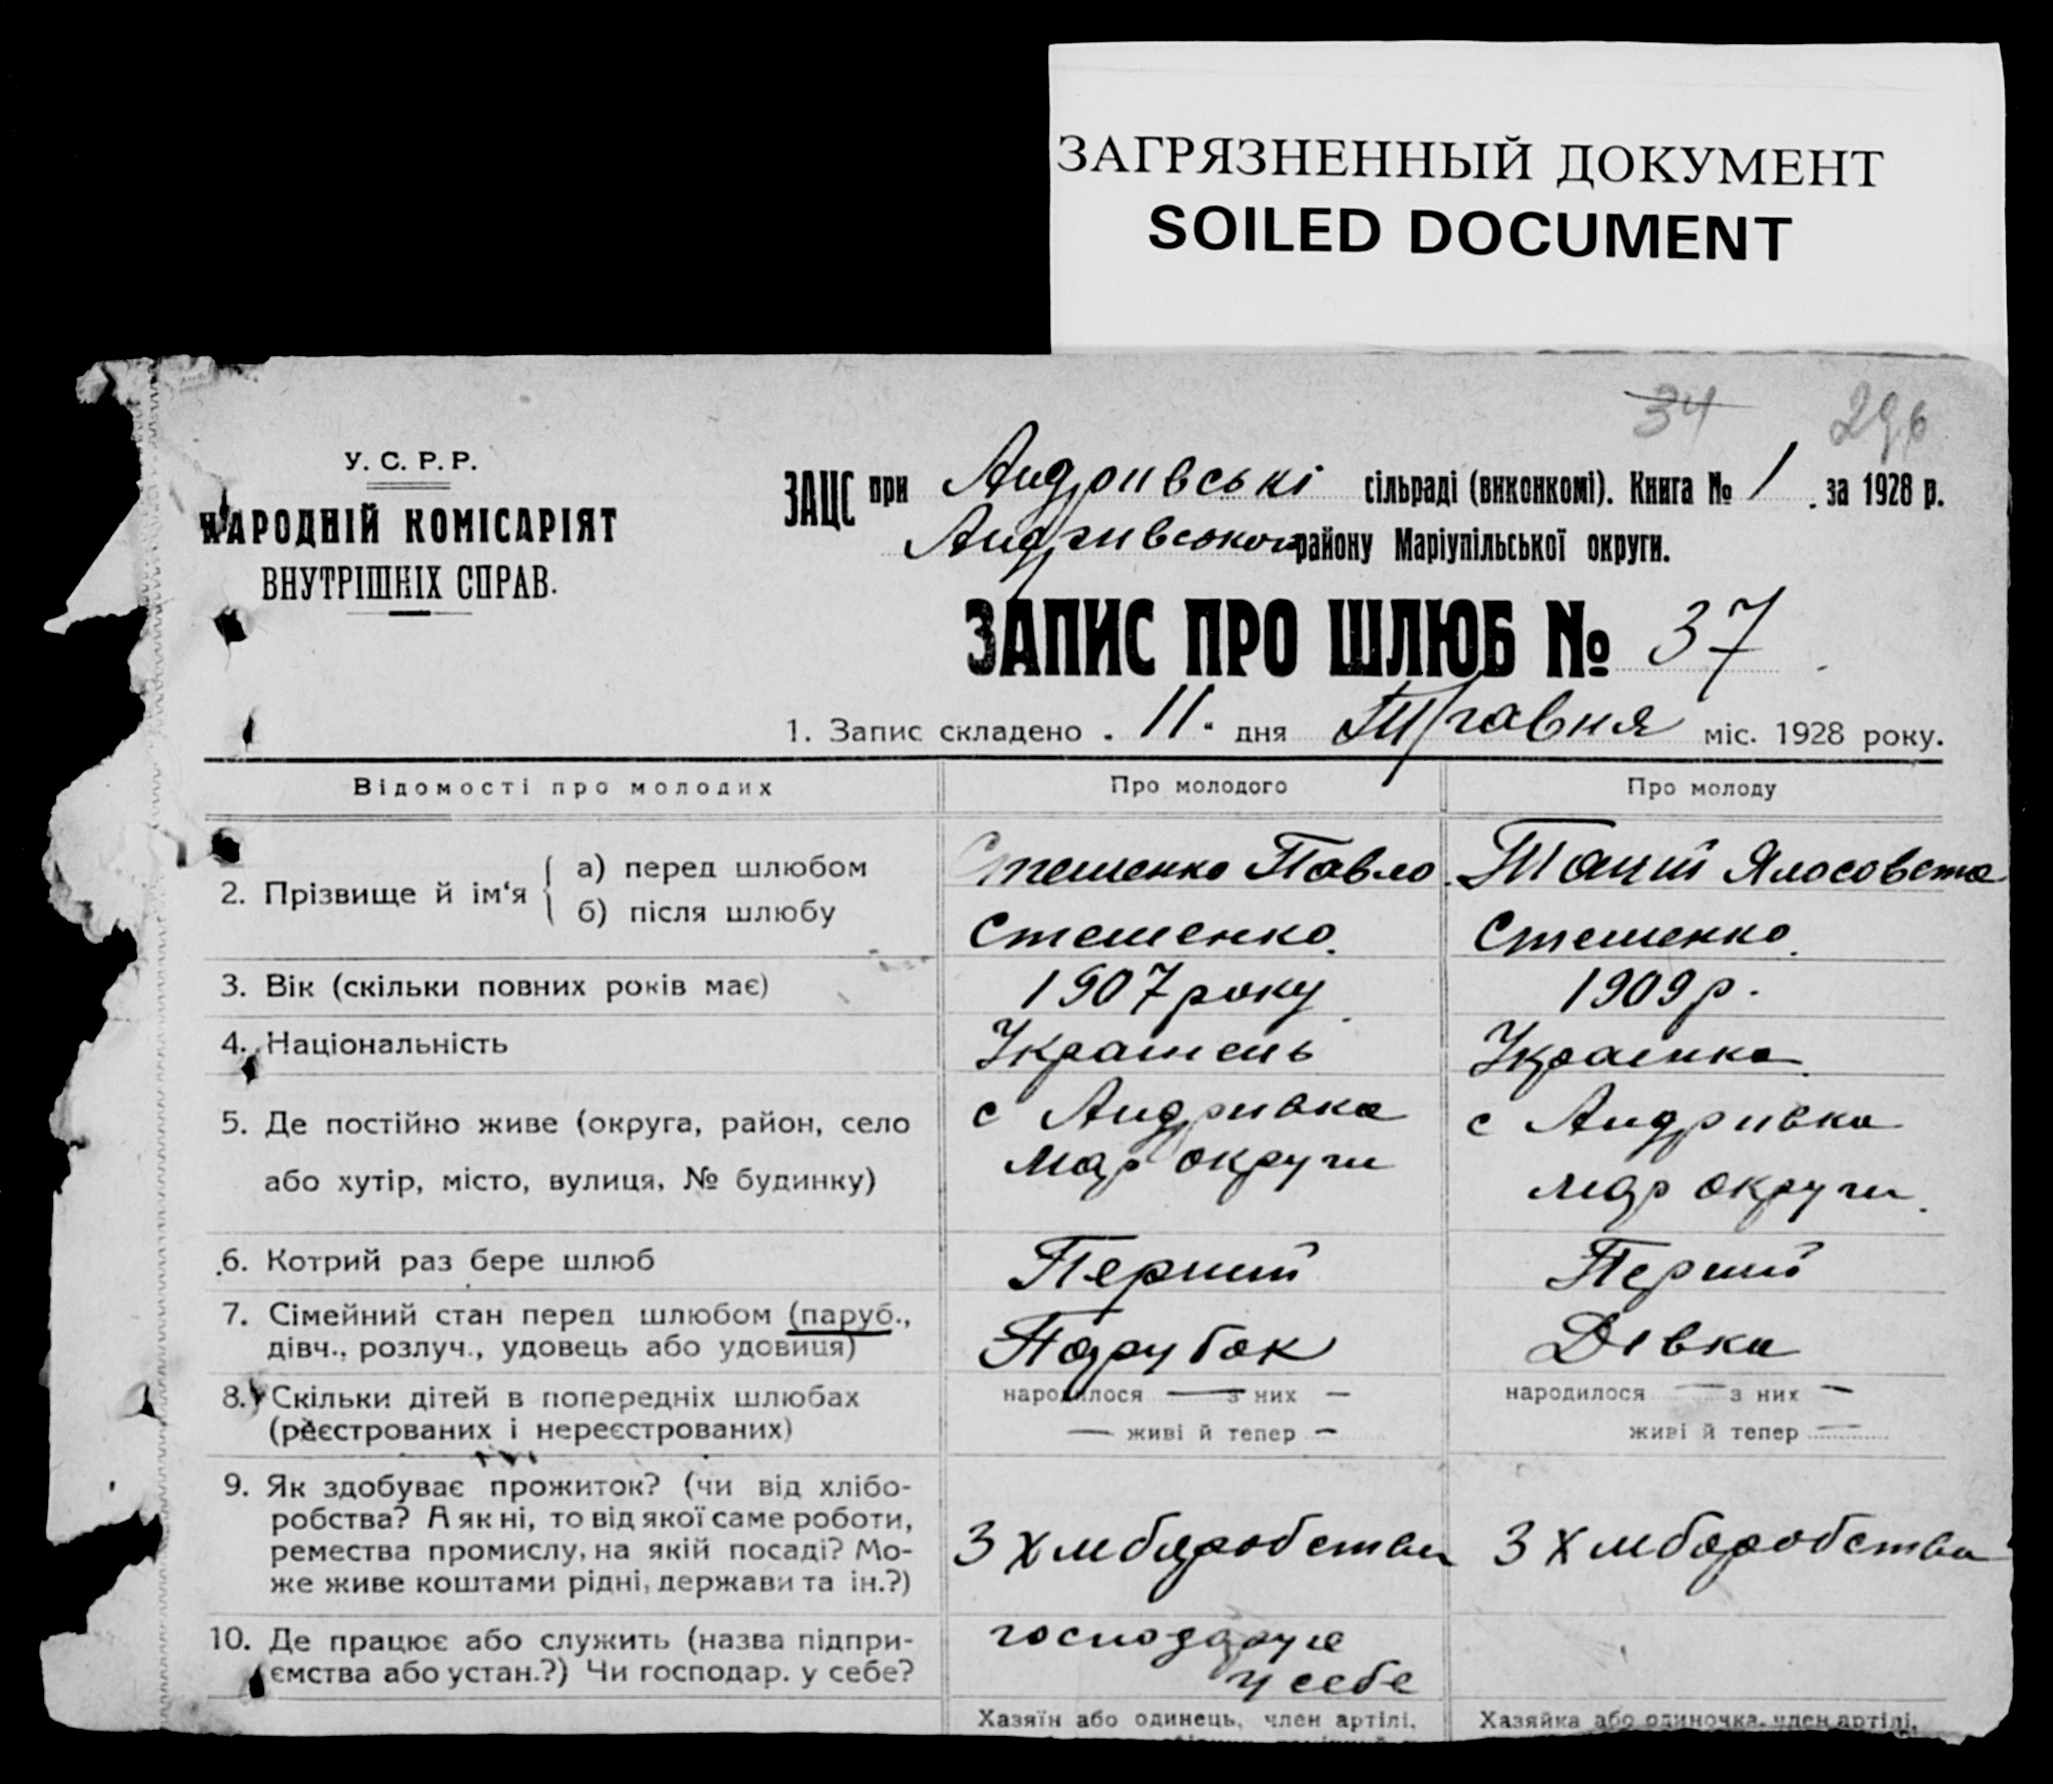 ЗАГРЯЗНЕННЫЙ ДОКУМЕНТ
SOILED DOCUMENT
34 296
У. С. Р. Р.
НАРОДНІЙ КОМІСАРІЯТ
ВНУТРІШНІХ СПРАВ.
ЗАЦС при Андрівські сільраді (виконкомі). Книга № 1. за 1928 р.
Андрівського району Маріупільської округи.
ЗАПИС ПРО ШЛЮБ № 37
1. Запис складено „11“ дня Травня міс. 1928 року.
Відомості про молодих Про молодого Про молоду
2. Прізвище й ім'я
а) перед шлюбом Стешенко Павло
б) після шлюбу Стешенко Стешенко
3. Вік (скільки повних років має) 1907 року 1909 р.
4. Національність Украинець Украинка
5. Де постійно живе (округа, район, село с Андривка с Андривка
або хутір, місто, вулиця, № будинку) мар округи мар округи
6. Котрий раз бере шлюб Перший Перший
7. Сімейний стан перед шлюбом (паруб.,
дівч., розлуч., удовець або удовиця) Парубок Дівка
8. Скільки дітей в попередніх шлюбах народилося — з них — народилося — з них —
(реєстрованих і нереєстрованих) — живі й тепер — живі й тепер —
9. Як здобуває прожиток? (чи від хлібо-
робства? А як ні, то від якої саме роботи,
ремества промислу, на якій посаді? Мо- З хлиборобства З хлиборобства
же живе коштами рідні, держави та ін.?)
10. Де працює або служить (назва підпри- господарує
ємства або устан.?) Чи господар. у себе? у себе
Хазяїн або одинець, член артілі, Хазяйка або одиночка, член артілі,